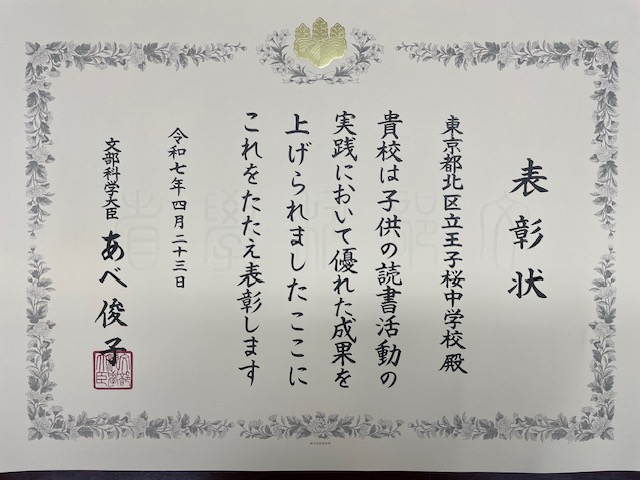 表彰状
東京都北区立王子桜中学校殿
貴校は子供の読書活動の
実践において優れた成果を
上げられましたここに
これをたたえ表彰します
令和七年四月二十三日
文部科学大臣 あべ俊子